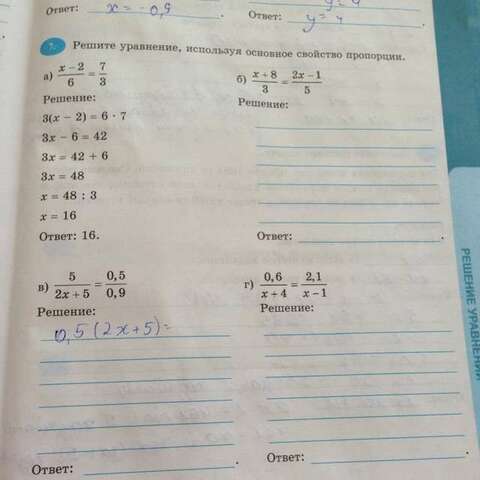 Ответ: x = -0,9 .
Ответ: y = 4 .
7. Решите уравнение, используя основное свойство пропорции.
а) (x − 2)/6 = 7/3
Решение:
3(x − 2) = 6 · 7
3x − 6 = 42
3x = 42 + 6
3x = 48
x = 48 : 3
x = 16
Ответ: 16.
б) (x + 8)/3 = (2x − 1)/5
Решение:
Ответ: .
в) 5/(2x + 5) = 0,5/0,9
Решение:
0,5 (2x+5)=
Ответ: .
г) 0,6/(x + 4) = 2,1/(x − 1)
Решение:
Ответ: .
РЕШЕНИЕ УРАВНЕНИЙ